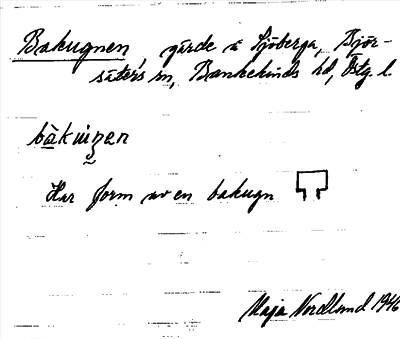 Bakugnen, gärde å Sjöberga, Björ-
säters sn, Bankekinds hd, Östg. l.
bàkuŋnen
Har form av en bakugn
Maja Nordlund 1946